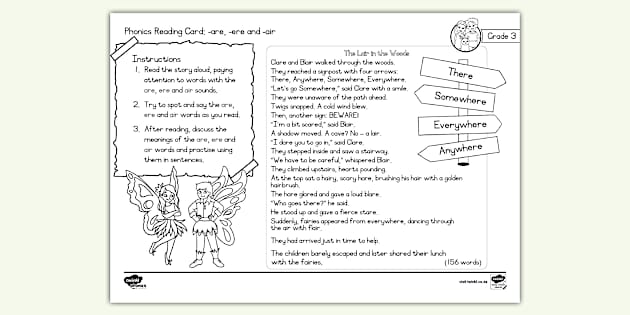 Phonics Reading Card; -are, -ere and -air
Grade 3
Instructions
1. Read the story aloud, paying
attention to words with the
are, ere and air sounds.
2. Try to spot and say the are,
ere and air words as you read.
3. After reading, discuss the
meanings of the are, ere and
air words and practise using
them in sentences.
The Lair in the Woods
Clare and Blair walked through the woods.
They reached a signpost with four arrows:
There, Anywhere, Somewhere, Everywhere.
"Let's go Somewhere," said Clare with a smile.
They were unaware of the path ahead.
Twigs snapped. A cold wind blew.
Then, another sign: BEWARE!
"I'm a bit scared," said Blair.
A shadow moved. A cave? No – a lair.
"I dare you to go in," said Clare.
They stepped inside and saw a stairway.
"We have to be careful," whispered Blair.
They climbed upstairs, hearts pounding.
At the top sat a hairy, scary hare, brushing his hair with a golden
hairbrush.
The hare glared and gave a loud blare.
"Who goes there?" he said.
He stood up and gave a fierce stare.
Suddenly, fairies appeared from everywhere, dancing through
the air with flair.
They had arrived just in time to help.
The children barely escaped and later shared their lunch
with the fairies.
(156 words)
There
Somewhere
Everywhere
Anywhere
twinkl
visit twinkl.co.za